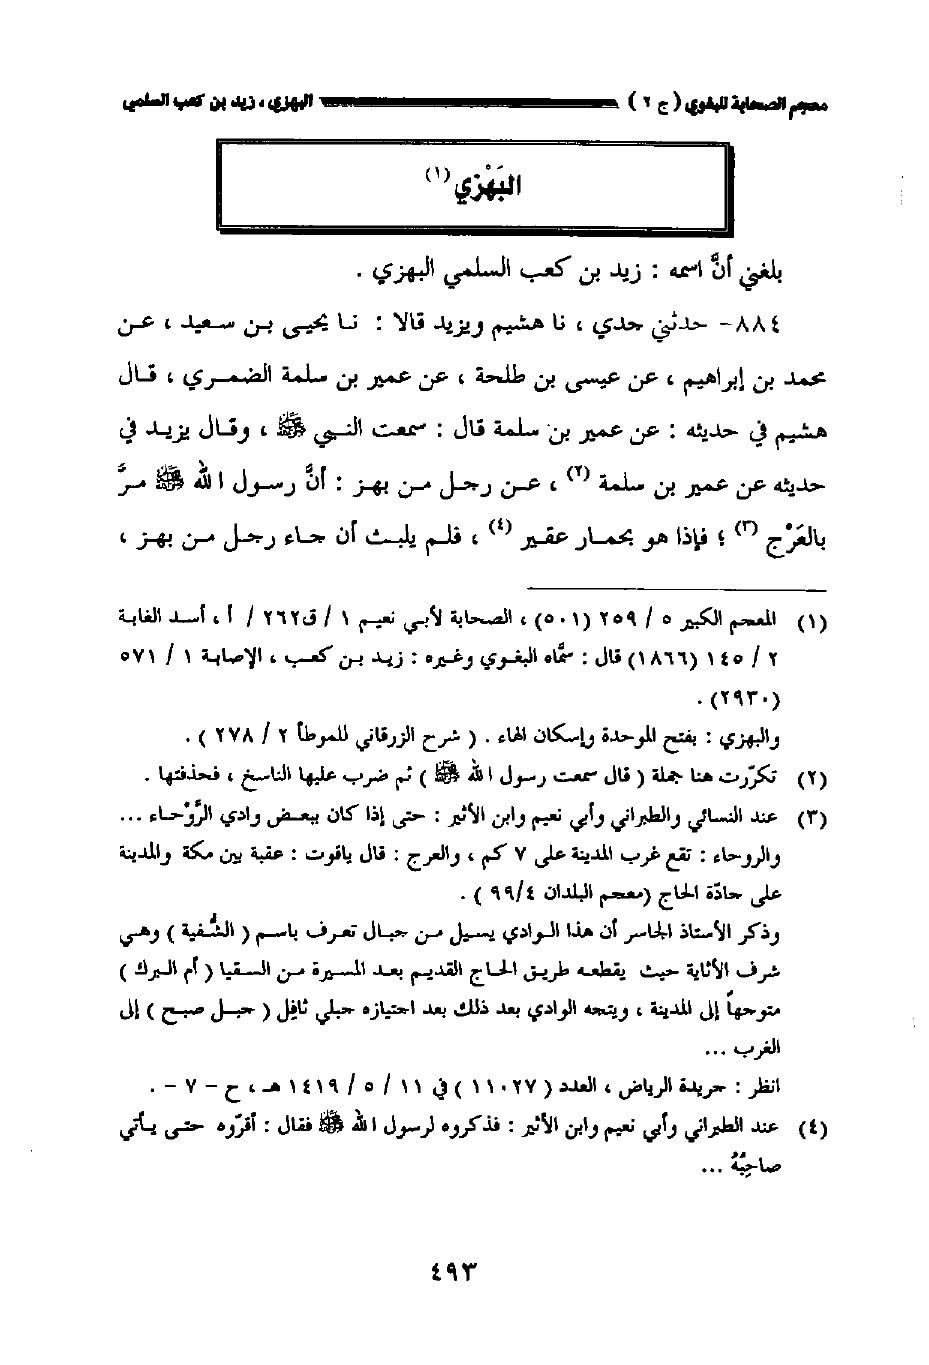 معجم الصحابة للبغوي ( ج ٢ ) البهزي ، زيد بن كعب السلمي
البَهْزي (١)
بلغني أنَّ اسمه : زيد بن كعب السلمي البهزي .
٨٨٤- حدثني جدي ، نا هشيم ويزيد قالا : نا يحيى بن سعيد ، عن
محمد بن إبراهيم ، عن عيسى بن طلحة ، عن عمير بن سلمة الضمري ، قال
هشيم في حديثه : عن عمير بن سلمة قال : سمعت النبي ﷺ ، وقال يزيد في
حديثه عن عمير بن سلمة (٢) ، عن رجل من بهز : أنَّ رسول الله ﷺ مرَّ
بالعَرْج (٣) ؛ فإذا هو بحمار عقير (٤) ، فلم يلبث أن جاء رجل من بهز ،
(١) المعجم الكبير ٥ / ٢٥٩ (٥٠١) ، الصحابة لأبي نعيم ١ / ق٢٦٢ / أ ، أسد الغابة
٢ / ١٤٥ (١٨٦٦) قال : سمَّاه البغوي وغيره : زيد بن كعب ، الإصابة ١ / ٥٧١
(٢٩٣٠) .
والبهزي : بفتح الموحدة وإسكان الهاء . ( شرح الزرقاني للموطأ ٢ / ٢٧٨ ) .
(٢) تكرّرت هنا جملة ( قال سمعت رسول الله ﷺ ) ثم ضرب عليها الناسخ ، فحذفتها .
(٣) عند النسائي والطبراني وأبي نعيم وابن الأثير : حتى إذا كان ببعض وادي الرَّوْحاء ...
والروحاء : تقع غرب المدينة على ٧ كم ، والعرج : قال ياقوت : عقبة بين مكة والمدينة
على جادّة الحاج (معجم البلدان ٩٩/٤ ) .
وذكر الأستاذ الجاسر أن هذا الوادي يسيل من جبال تعرف باسم ( الشُفية ) وهي
شرف الأثاية حيث يقطعه طريق الحاج القديم بعد المسيرة من السقيا ( أم البرك )
متوجهاً إلى المدينة ، ويتجه الوادي بعد ذلك بعد اجتيازه جبلي ثافِل ( جبل صبح ) إلى
الغرب ...
انظر : جريدة الرياض ، العدد ( ١١٠٢٧ ) في ١١ / ٥ / ١٤١٩ هـ ، ح - ٧ - .
(٤) عند الطبراني وأبي نعيم وابن الأثير : فذكروه لرسول الله ﷺ فقال : أقرّوه حتى يأتي
صاحِبُهُ ...
٤٩٣